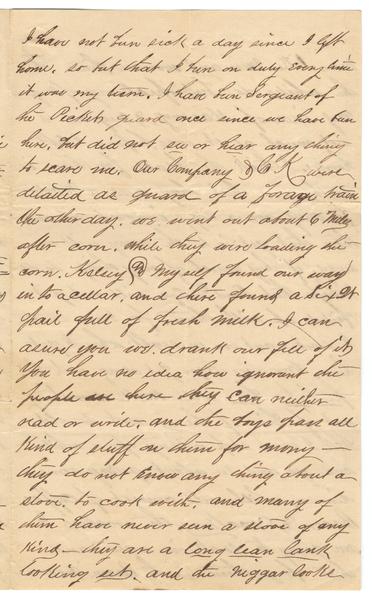 I have not bun sick a day since I left
home. so but that I bin on duty every time
it was my turn. I have bin Sergeant of
the Pickets guard once since we have bun
here, but did not se or hear any thing
to scare me. Our Company & Co K were
detailed as guard of a forage train
the other day. we went out about 6 Miles
after corn. while they were loading the
corn. Kelsey & My self found our way
in to a cellar, and there found a Six Qt
pail full of fresh milk. I can
asure you we drank our fill of it,
You have no idea how ignorant the
people are here they can neither
read or write. and the boys pass all
kind of stuff on them for mony —
they do not know any thing about a
stove. to cook with. and many of
them have never seen a stove of any
kind — they are a long lean lank
looking set. and the niggar looks